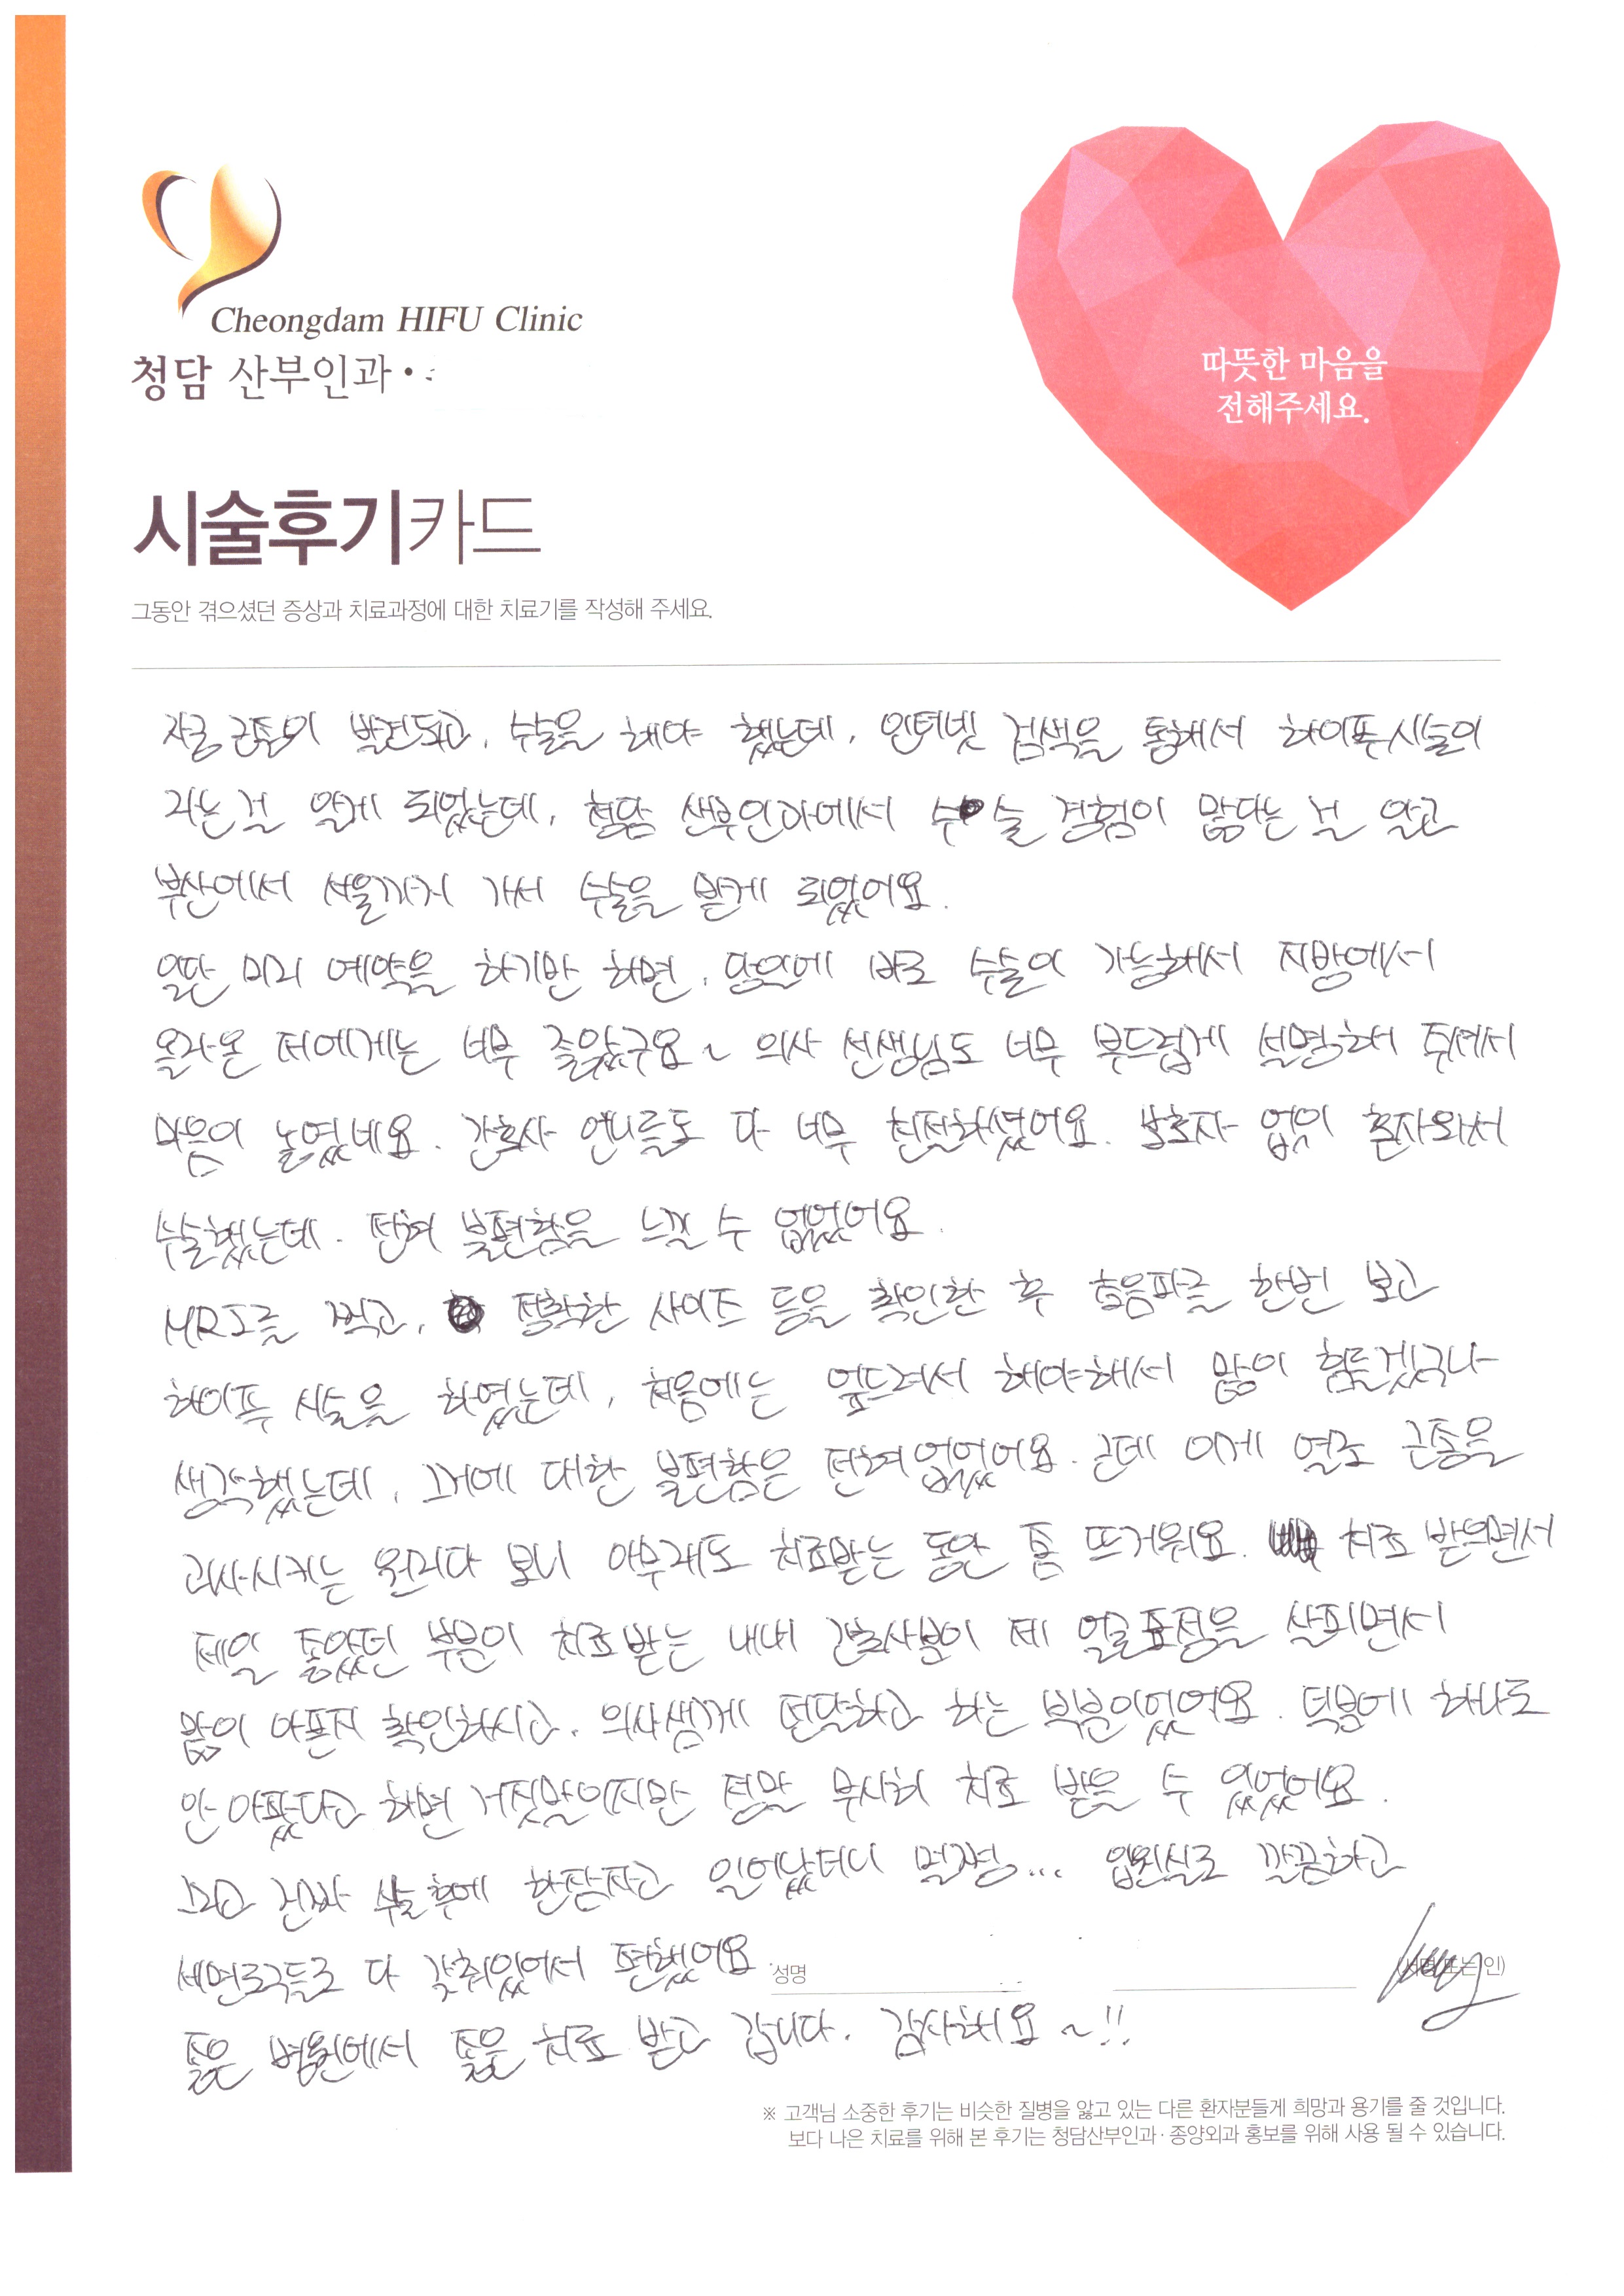 Cheongdam HIFU Clinic
청담 산부인과·
따뜻한 마음을
전해주세요.
시술후기카드
그동안 겪으셨던 증상과 치료과정에 대한 치료기를 작성해 주세요.
자궁근종이 발견되고, 수술을 해야 했는데, 인터넷 검색을 통해서 하이푸시술이
라는 걸 알게 되었는데, 청담 산부인과에서 수술 경험이 많다는 걸 알고
부산에서 서울까지 가서 수술을 받게 되었어요.
일단 미리 예약을 하기만 하면, 당일에 바로 수술이 가능해서 지방에서
올라온 저에게는 너무 좋았구요~ 의사 선생님도 너무 부드럽게 설명해 주셔서
마음이 놓였네요. 간호사 언니들도 다 너무 친절하셨어요. 보호자 없이 혼자와서
수술했는데. 전혀 불편함을 느낄 수 없었어요.
MRI를 찍고, 정확한 사이즈 등을 확인한 후 초음파를 한번 보고
하이푸 시술을 하였는데, 처음에는 엎드려서 해야해서 많이 힘들겠구나
생각했는데, 그거에 대한 불편함은 전혀 없었어요. 근데 이게 열로 근종을
괴사시키는 원리다 보니 아무래도 치료받는 동안 좀 뜨거워요. 치료 받으면서
제일 좋았던 부분이 치료받는 내내 간호사분이 제 얼굴표정을 살피면서
많이 아픈지 확인하시고, 의사샘께 전달하고 하는 부분이었어요. 덕분에 하나도
안 아팠다고 하면 거짓말이지만 정말 무사히 치료 받을 수 있었어요.
그리고 진짜 수술 후에 한잠자고 일어났더니 멀쩡... 입원실도 깔끔하고
세면도구들도 다 갖춰있어서 편했어요.
성명 (서명 또는 인)
좋은 병원에서 좋은 치료 받고 갑니다. 감사해요~!!
※ 고객님 소중한 후기는 비슷한 질병을 앓고 있는 다른 환자분들게 희망과 용기를 줄 것입니다.
보다 나은 치료를 위해 본 후기는 청담산부인과·종양외과 홍보를 위해 사용 될 수 있습니다.